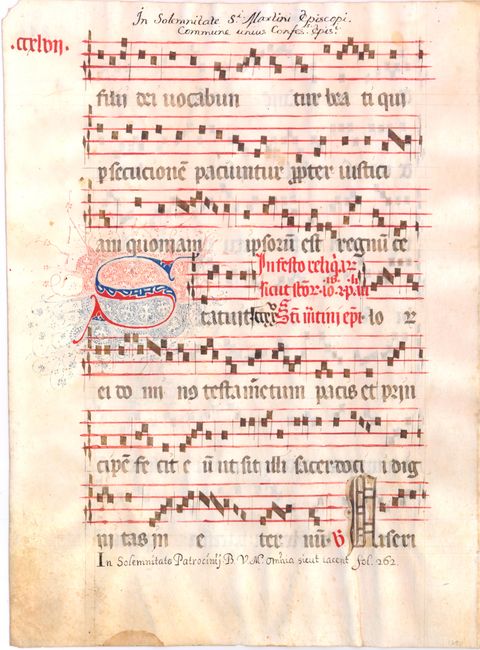 In Solemnitate S.ti Martini Episcopi.
Commune unius Confes. Epis.
.ccxlvij.
filij dei vocabun tur bea ti qui
psecucionē paciuntur ꝓpter iustici
am quoniam ipsorū est regnū ce
In festo reliq̄ar
sicut
Statuit Sci m̄tini ep̄i lo
ei do mi nꝰ testam̄etum pacis et prin
cipē fe cit e ū ut sit illi sacerdoci i dig
ni tas in e ter nū. v̄ Miseri
In Solemnitate Patrocinij B. V. M. omnia sicut iacent fol. 262.